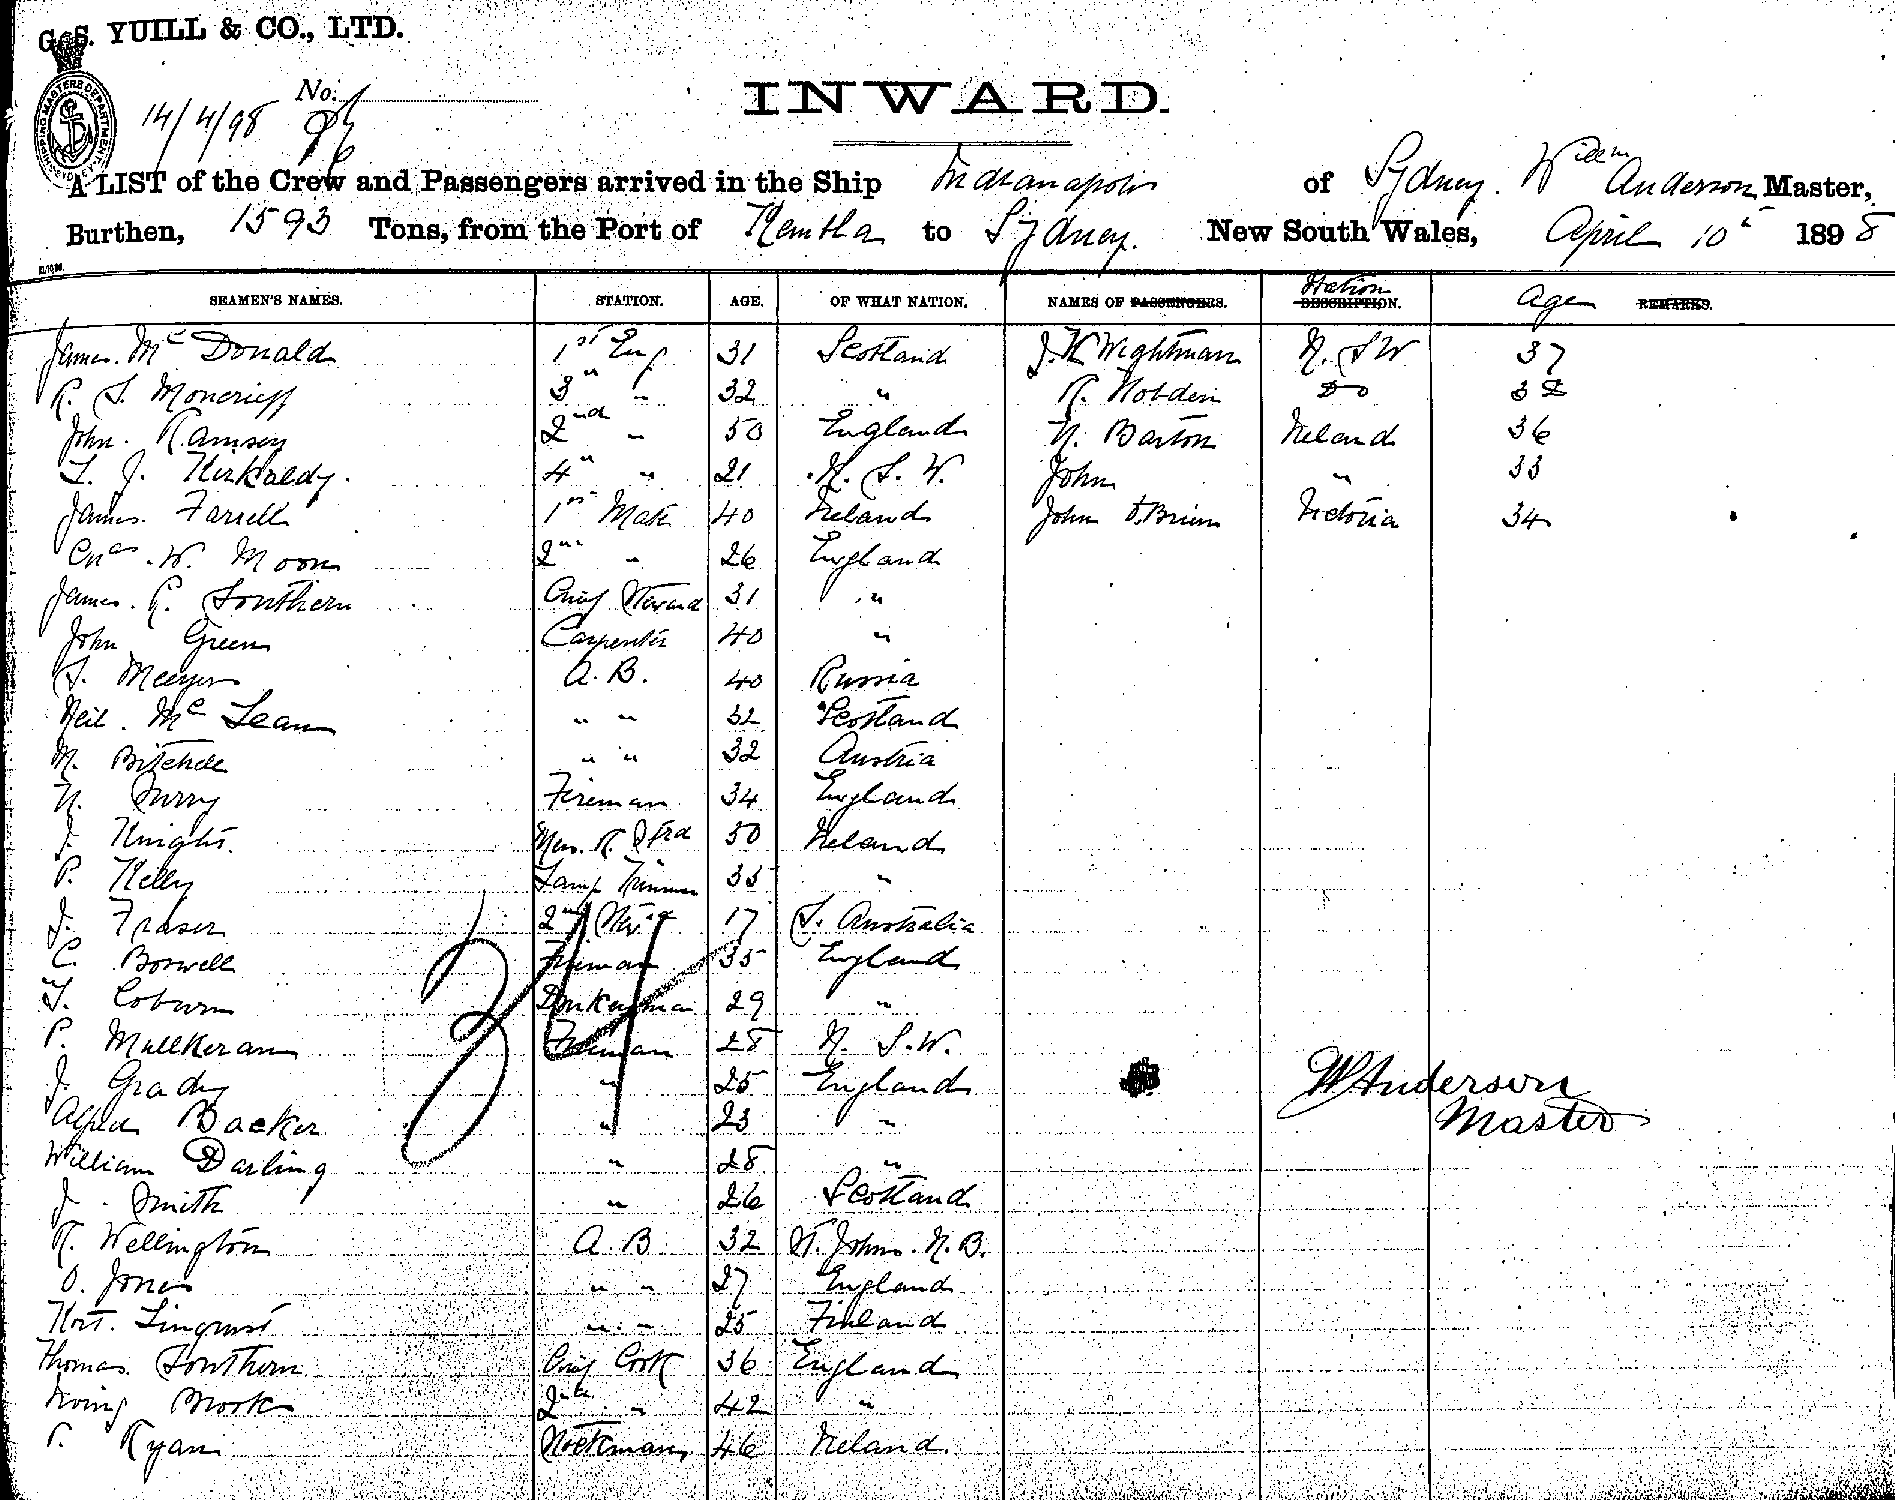 G. S. YUILL & CO., LTD.
SHIPPING MASTERS DEPARTMENT SYDNEY
14/4/98 No.
INWARD.
A LIST of the Crew and Passengers arrived in the Ship Indianapolis of Sydney. Willm Anderson Master,
Burthen, 1593 Tons, from the Port of Kembla to Sydney. New South Wales, April 10th 1898
SEAMEN'S NAMES. STATION. AGE. OF WHAT NATION. NAMES OF PASSENGERS. Station DESCRIPTION. Age REMARKS.
James Mc Donald 1st Eng 31 Scotland J. K Wightman N. S W 37
R. S. Moncrieff 3 " " 32 " R. Hobden Do 32
John. Ramsey 2nd " 50 England H. Barton Ireland 36
T. J. Kirkaldy. 4 " " 21 N. S. W. John " 33
James. Farrell 1st Mate 40 Ireland John O'Brien Victoria 34
Chas. W. Moon 2nd " 26 England
James. R. Southern Chief Steward 31 "
John Green Carpenter 40 "
S. Meeyer A. B. 40 Russia
Neil. Mc Lean " " 32 Scotland
M. " " 32 Austria
H. Surry Fireman 34 England
J. Knight. Mess. R. Strd 50 Ireland
P. Kelly Lamp Trimmer 35 "
J. Fraser 2nd Stew 17 S. Australia
C. Boswell Fireman 35 England
T. Coburn Donkeyman 29 "
P. Mullkeran Fireman 28 N. S. W.
J. Grady " 25 England
Alfred Backer " 23 "
William Darling " 28 "
J. Smith " 26 Scotland
R. Wellington A. B. 32 St. Johns. N. B.
O. Jones " " 27 England
Kort. Linqvist " " 25 Finland
Thomas. Southern Chief Cook 36 England
Irving Brook 2nd " 42 "
P. Ryan Stockman 46 Ireland.
31
W Anderson
Master